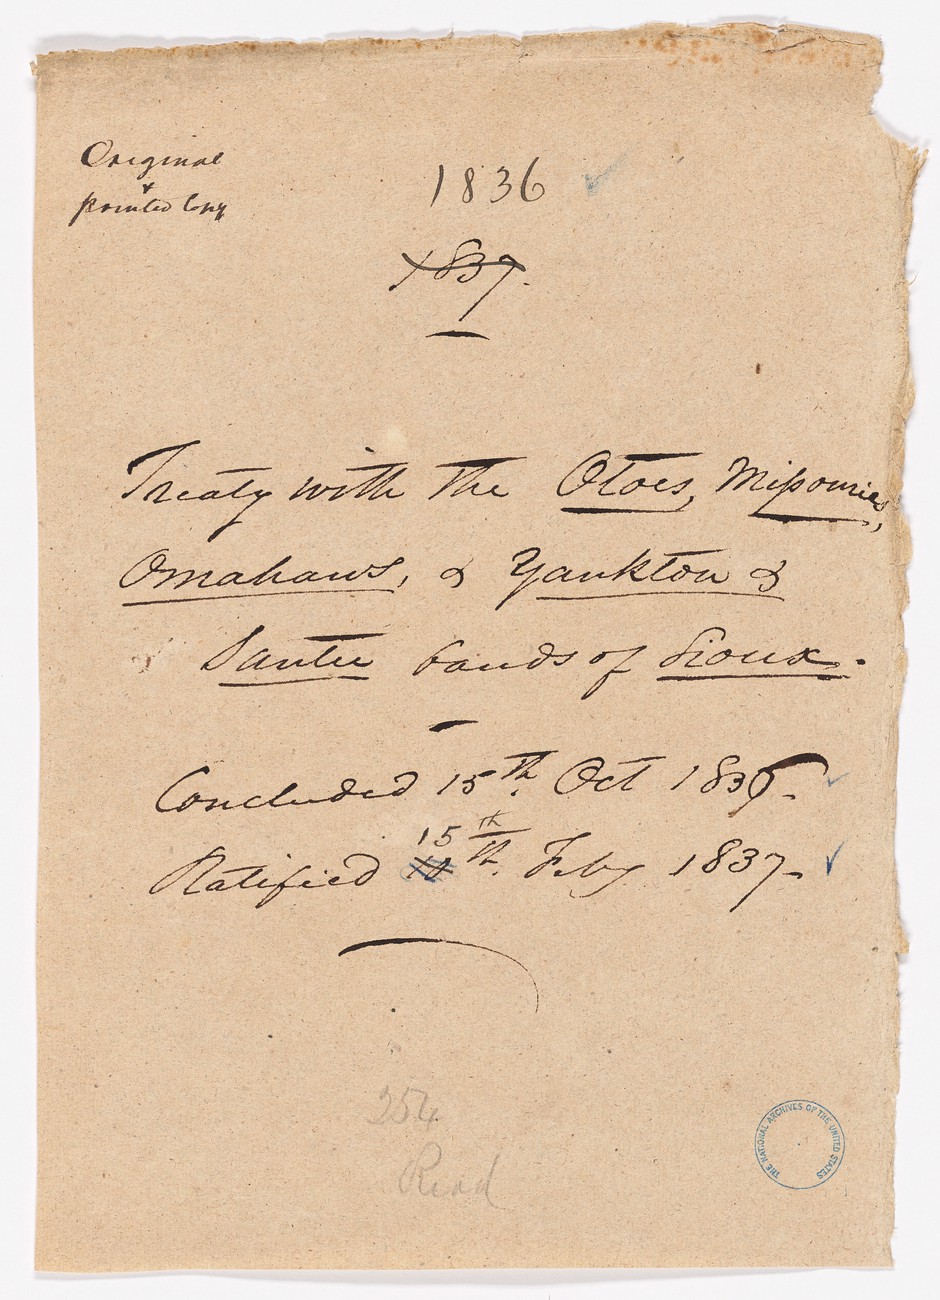 Original
&
printed Copy
1836
1837.
Treaty with the Otoes, Missouries,
Omahaws, & Yankton &
Santee bands of Sioux.
Concluded 15th. Oct 1836.
15th
Ratified th. Feby 1837.
254
Read
THE NATIONAL ARCHIVES OF THE UNITED STATES